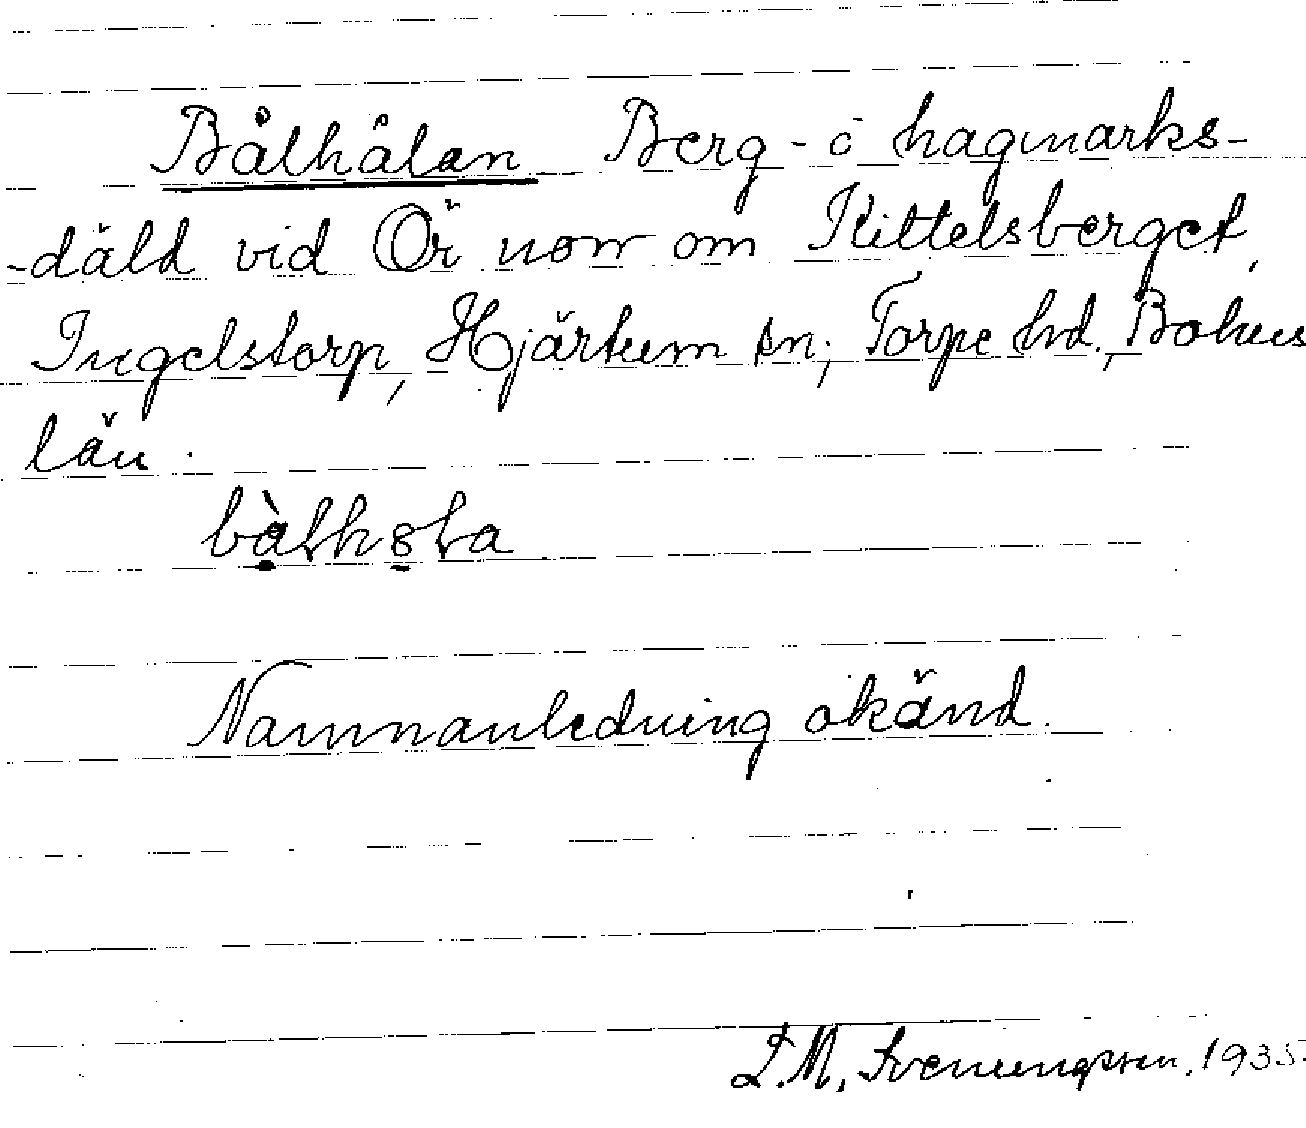 Bålhålan Berg- o hagmarks-
-däld vid Ör norr om Kittelsberget,
Ingelstorp, Hjärtum sn; Torpe hd., Bohus
län.
Namnanledning okänd.
L.M. Svenungsson. 1935.